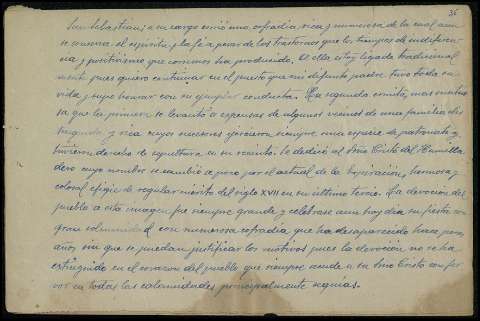 36
San Sebastian; a su cargo corrió una cofradía, rica y numerosa de la cual aun
se conserva el espíritu y la fé a pesar de los trastornos que los tiempos de indiferen-
cia y positivismo que corremos ha producido. A ella estoy ligado tradicional
mente pues quiero continuar en el puesto que mi difunto padre tuvo toda su
vida y supo honrar con su ejemplar conducta. La segunda ermita, mas suntuo
sa que la primera se levantó a expensas de algunos vecinos de una familia
segunda y rica cuyos sucesores ejercieron siempre una especie de patronato y
tuvieron derecho de sepultura en su recinto. Se dedicó al Smo Cristo del Humilla
dero cuyo nombre se cambió a poco por el actual de la Expiracion, hermosa y
colosal efigie de regular mérito del siglo XVII en su último tercio. La devocion del
pueblo a esta imagen fue siempre grande y celebrase aun hoy dia su fiesta con
gran solemnidad con numerosa cofradia que ha desaparecido hace pocos
años sin que se puedan justificar los motivos pues la devoción no se ha
extinguido en el corazon del pueblo que siempre acude a su Smo Cristo con fer-
vor en todas las calamidades principalmente sequias.